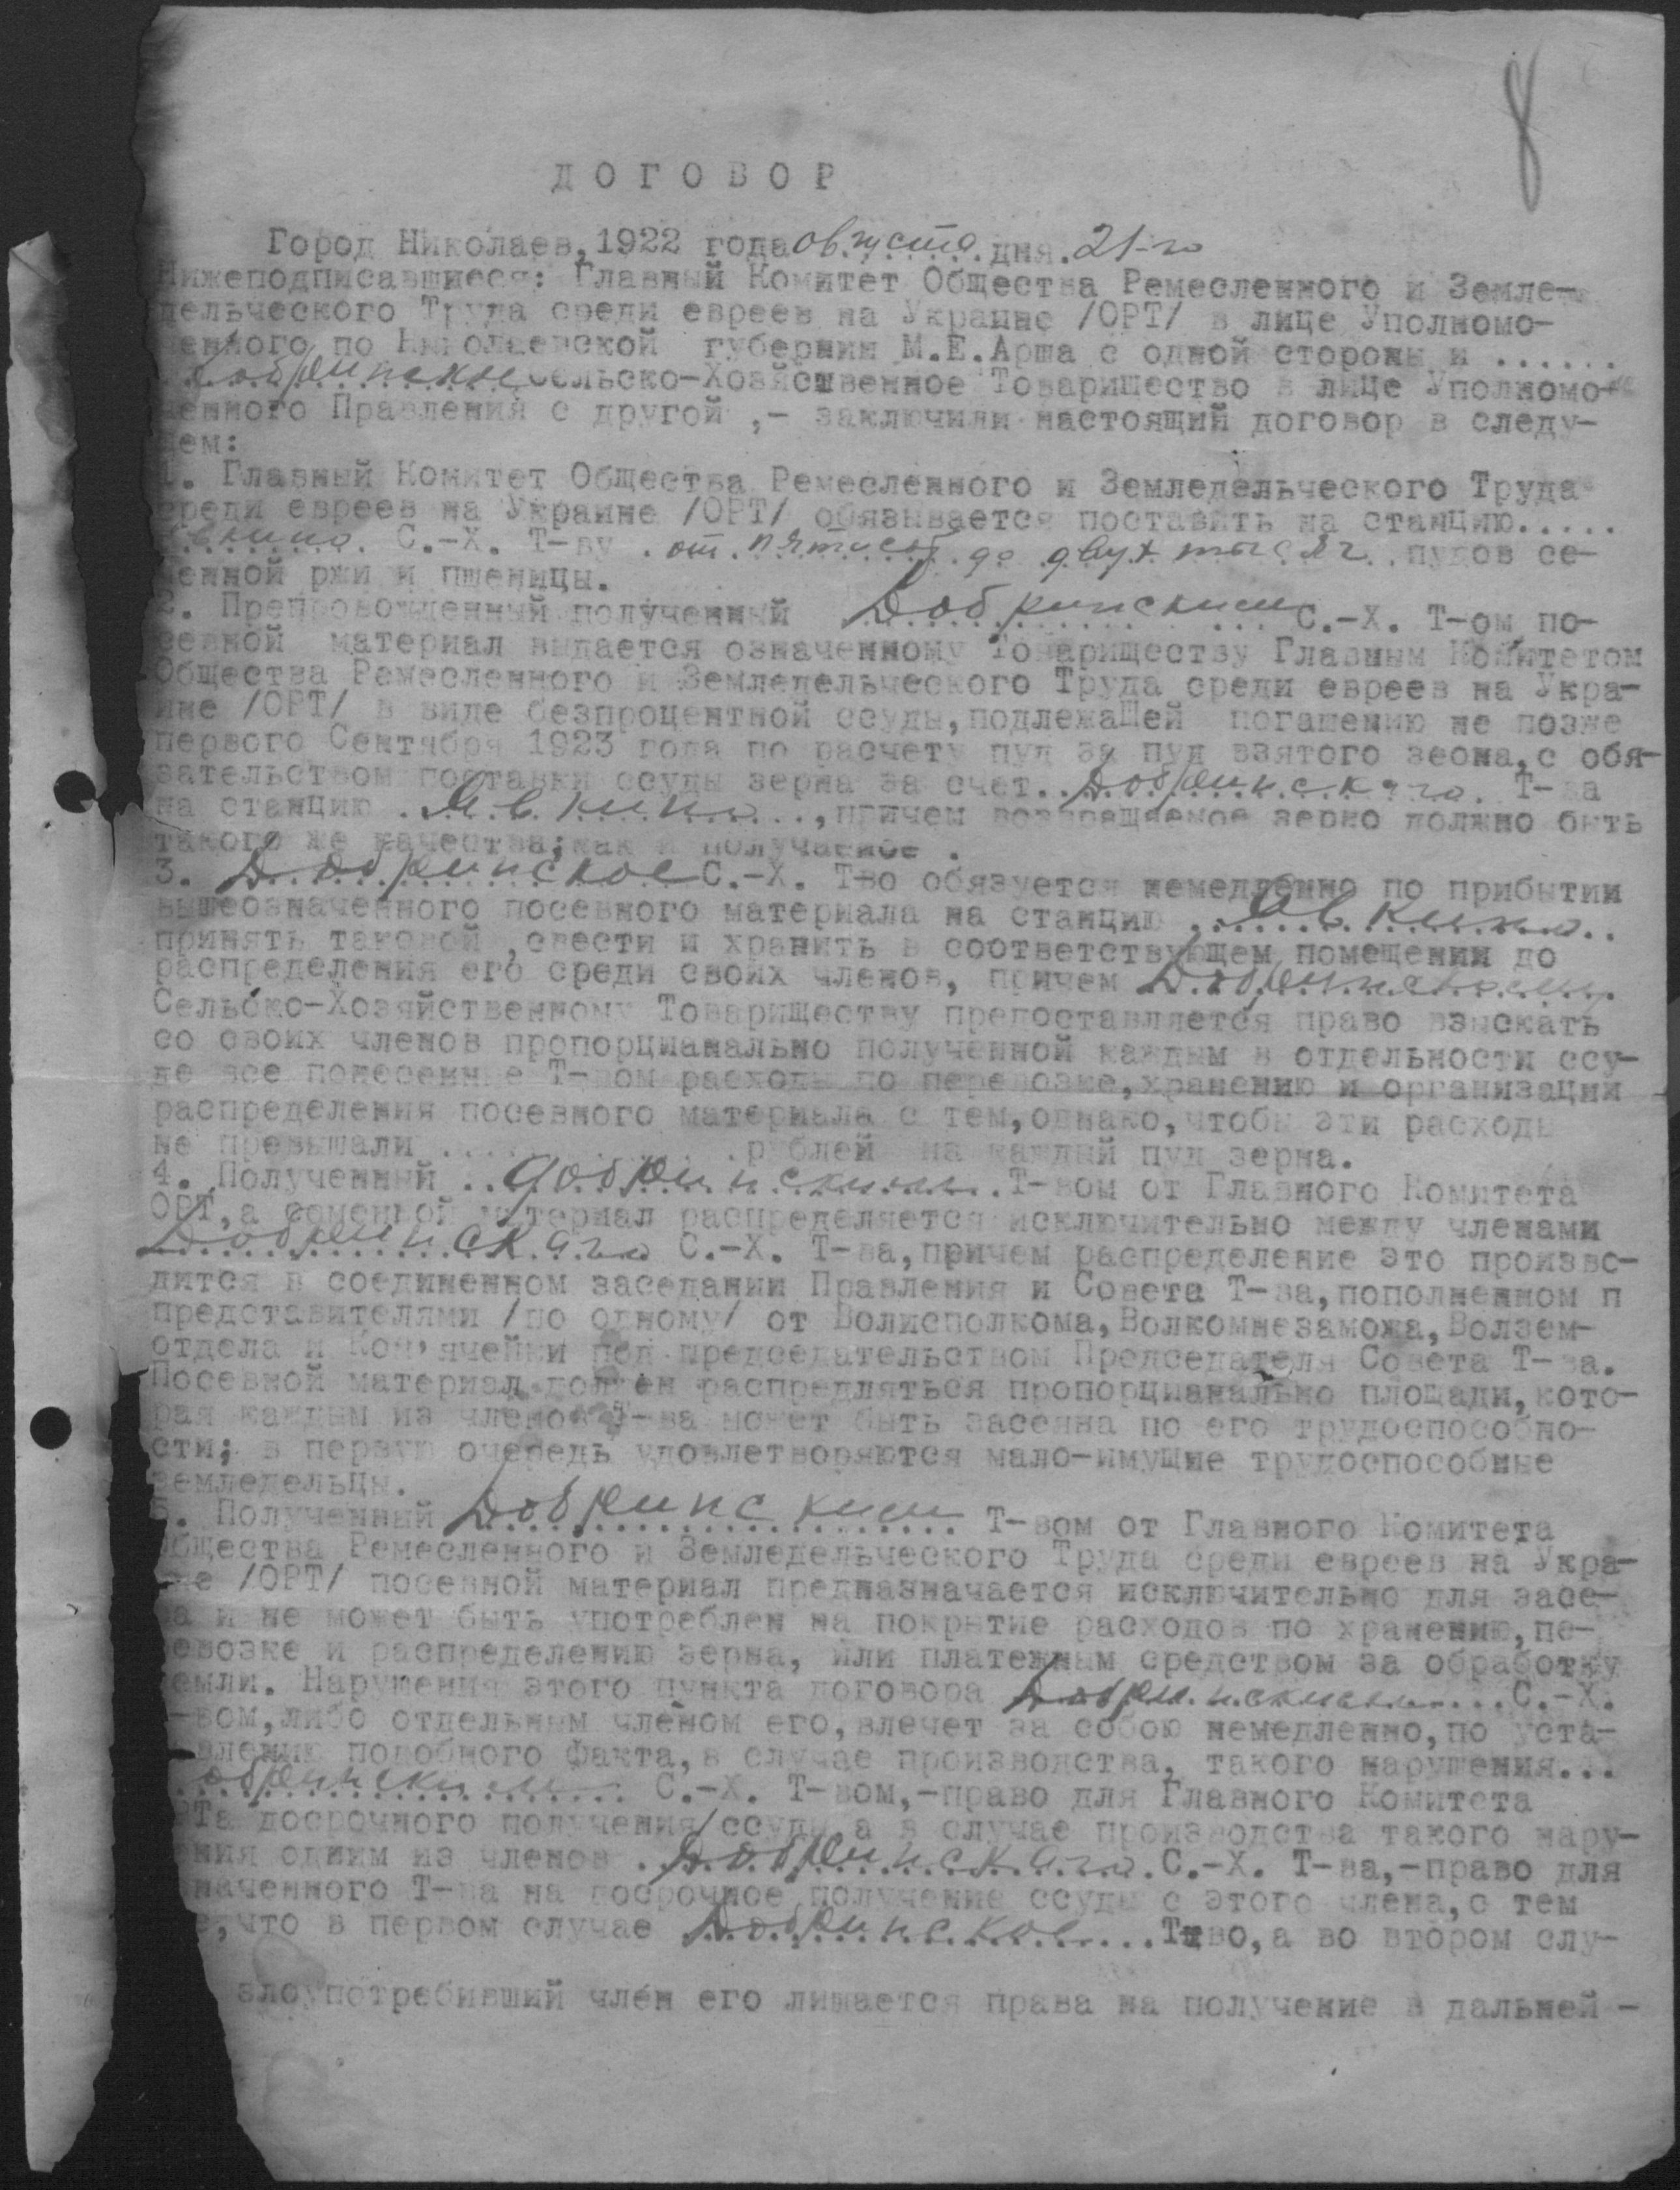 8
ДОГОВОР
Город Николаев, 1922 года августа дня. 21-го
Нижеподписавшиеся: Главный Комитет Общества Ремесленного и Земле-
дельческого Труда среди евреев на Украине /ОРТ/ в лице Уполномо-
ченного по Николаевской губернии М.Е.Арша с одной стороны и ......
Добринское Сельско-Хозяйственное Товарищество в лице Уполномо-
ченного Правления с другой ,- заключили настоящий договор в следу-
щем:
1. Главный Комитет Общества Ремесленного и Земледельческого Труда
среди евреев на Украине /ОРТ/ обязывается поставить на станцию.....
Явкино. С.-Х. Т-ву . от пятисот до двух тысяч . пудов се-
менной ржи и пшеницы.
2. Препровожденный полученный Добринским С.-Х. Т-ом по-
севной материал выдается означенному Товариществу Главным Комитетом
Общества Ремесленного и Земледельческого Труда среди евреев на Укра-
ине /ОРТ/ в виде безпроцентной ссуды, подлежаЩей погашению не позже
первого Сентября 1923 года по расчету пуд за пуд взятого зеона, с обя-
зательством поставки ссуды зерна за счет. Добринскаго. Т-ва
на станцию . Явкино ..., причем возвращаемое зерно должно быть
такого же качества; как и получаемое .
3. Добринское С.-Х. Тво обязуется немедленно по прибытии
вышеозначенного посевного материала на станцию . Явкино..
принять таковой , свести и хранить в соответствующем помещении до
распределения его среди своих членов, причем Добринскому
Сельско-Хозяйственному Товариществу предоставляется право взыскать
со своих членов пропорцианально полученной каждым в отдельности ссу-
де все понесенные Т-вом расходы по перевозке, хранению и организации
распределения посевного материала с тем, однако, чтобы эти расходы
не превышали .... . . .рублей на каждый пуд зерна.
4. Полученный .. Добринским . Т-вом от Главного Комитета
ОРТ, а семенной материал распределяется исключительно между членами
Добринскаго С.-Х. Т-ва, причем распределение это произво-
дится в соединенном заседании Правления и Совета Т-ва, пополненном п
представителями /по одному/ от Волисполкома, Волкомнезаможа, Волзем-
отдела и Ком'ячейки под председательством Председателя Совета Т-ва.
Посевной материал должен распредляться пропорцианально площади, кото-
рая каждым из членов Т-ва может быть засеяна по его трудоспособно-
сти; в первую очередь удовлетворяются мало-имущие трудоспособные
земледельцы.
5. Полученный Добринским Т-вом от Главного Комитета
Общества Ремесленного и Земледельческого Труда среди евреев на Укра-
ине /ОРТ/ посевной материал предназначается исключительно для засе-
ва и не может быть употреблен на покрытие расходов по хранению, пе-
ревозке и распределению зерна, или платежным средством за обработку
земли. Нарушения этого пункта договора Добринским ... С.-Х.
-вом, либо отдельным членом его, влечет за собою немедленно, по уста-
влению подобного факта, в случае производства, такого нарушения...
обринским С.-Х. Т-вом,-право для Главного Комитета
РТа досрочного получения ссуды, а в случае производства такого нару-
ения одним из членов . Добринскаго. С.-Х. Т-ва,-право для
наченного Т-ва на досрочное получение ссуды с этого члена, с тем
е, что в первом случае Добринское ... Т-во, а во втором слу-
злоупотребивший член его лишается права на получение в дальней -